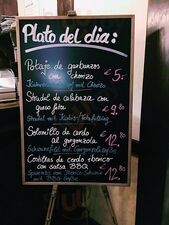 Plato del dia:
Potaje de garbanzos
con chorizo € 5.-
mit Chorizo
Strudel de calabaza con
queso feta € 9.80
Strudel mit Kürbis/Fetafüllung
Solomillo de cerdo
al gorgonzola € 12.80
Schweinefilet mit Gorgonzolasoße
Costillas de cerdo iberico
con salsa BBQ € 12.80
mit BBQ Soße